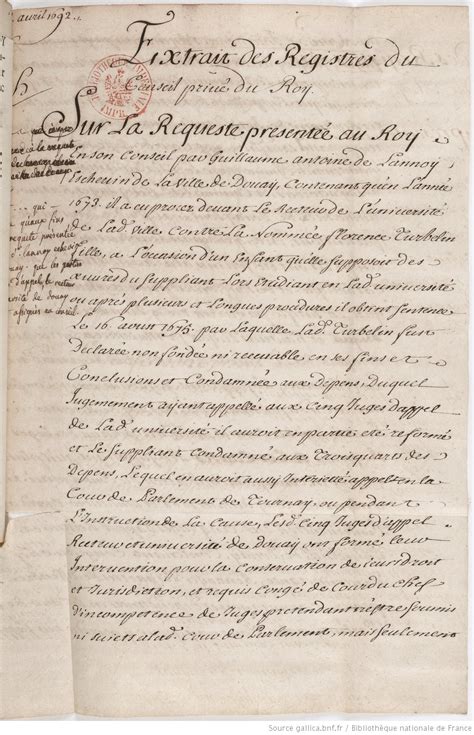 avril 1692.
Extrait des Registres du
Conseil privé du Roy.
Sur La Requeste presenteé au Roy
En son Conseil par Guillaume antoine de Lannoy
Eschevin de La Ville de Douay, Contenant qu'en L'année
1673. il a eu procez devant Le Recteur de L'université
de Lad. Ville Contre La Nommée florence Turbelin
fille, a L'occasion d'un Enfant qu'elle supposoit des
œuvres du Suppliant Lors Etudiant en Lad. université
ou apres plusieurs et Longues procedures il obtint sentence
Le 16. aoust 1675. par Laquelle Lad. Turbelin fust
Declarée non fondée ni recevable en ses fins et
Conclusions et Condamnée aux Depens, Duquel
Jugement aijant appellé aux Cinq Juges d'appel
de Lad. université il auroit en partie eté reformé
et Le Suppliant Condamné aux Troisquarts des
Depens, Lequel en auroit aussi Interietté appel en La
Cour de Parlement de Tournay, ou pendant
L'Instruction de La Cause, Lesd. Cinq Juges d'appel
Recteur et université de Douay ont formé Leur
Intervention pour La Conservation de Leurs Droit
et Jurisdiction, et requis Congé de Cour du Chef
d'incompetence de Juges pretendant n'estre soumis
ni sujets a Lad. Cour de Parlement, mais seulement
qui
requete présentée
de Lannoy
d'appel
de Douay
au conseil
Source gallica.bnf.fr / Bibliothèque nationale de France